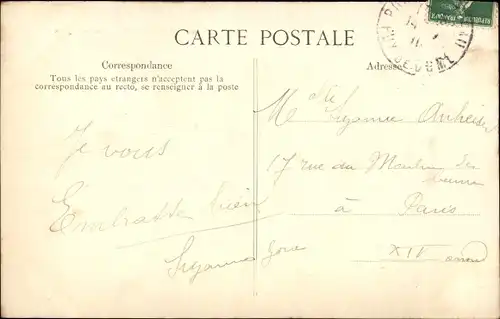 CARTE POSTALE
Correspondance
Tous les pays etrangers n'acceptent pas la
correspondance au recto, se renseigner à la poste
Je vous
Embrasse bien
Suzanne
Adresse
Mlle Suzanne
17 rue du Moulin des
à Paris
XIV arrond